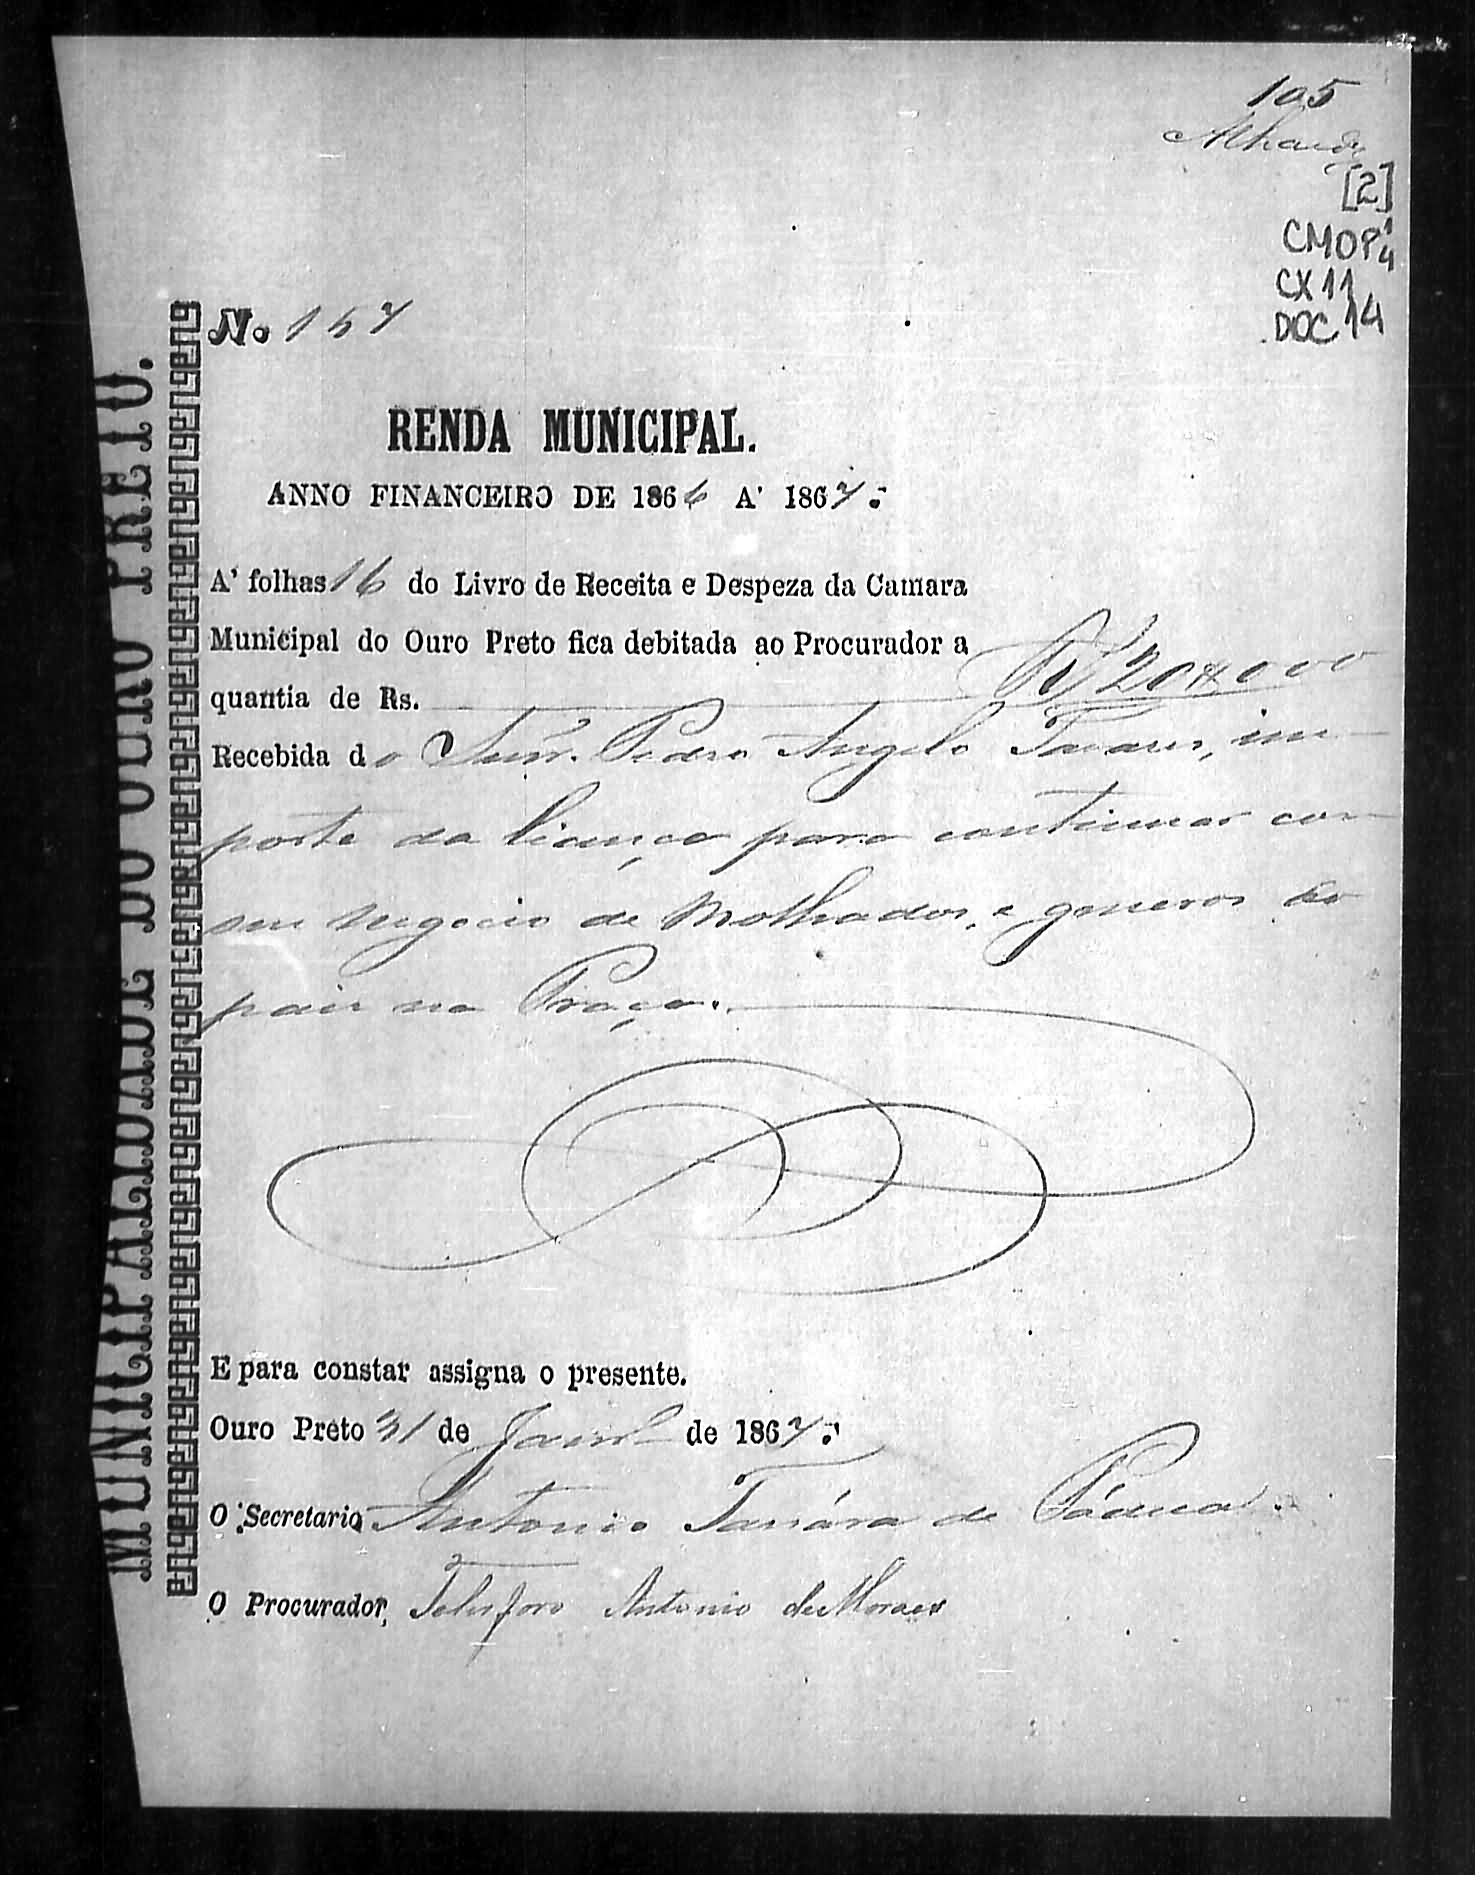 105
[2]
CMOP 1/4
CX 11
DOC 14
MUNICIPALIDADE DO OURO PRETO.
N. 157
RENDA MUNICIPAL.
ANNO FINANCEIRO DE 1866 A' 1867.
A' folhas 16 do Livro de Receita e Despeza da Camara
Municipal do Ouro Preto fica debitada ao Procurador a
quantia de Rs. Rs 20$000
Recebida do Snr. Pedro Angelo Tavares, im-
porte da licença para continuar com
seu negocio de Molhados, e generos do
paiz na Praça.
E para constar assigna o presente.
Ouro Preto 31 de Janr.o de 1867.
O Secretario Antonio de Pádua
O Procurador, Telesforo Antonio de Moraes